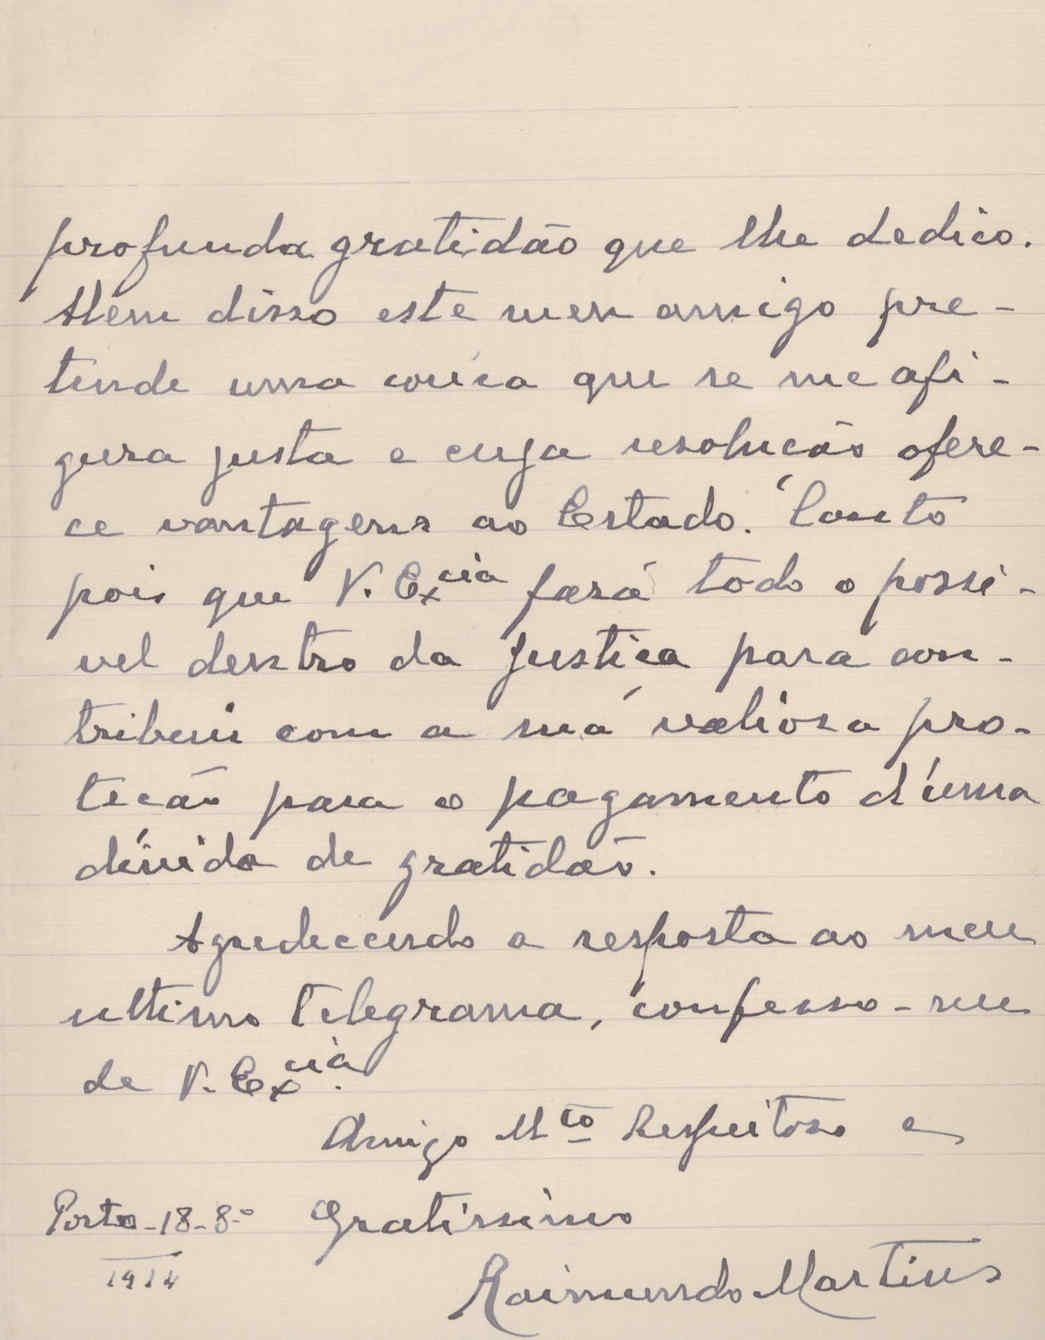 profunda gratidão que lhe dedico.
Além disso este meu amigo pre-
tende uma couca que se me afi-
gura justa e cuja resolução ofere-
ce vantagens ao Estado. Conto
pois que V. Excia fará todo o possi-
vel dentro da justiça para con-
tribuir com a sua valiosa pro-
tecão para o pagamento d'uma
divida de gratidão.
Agradecendo a resposta ao meu
ultimo telegrama, confesso-me
de V. Excia.
Amigo Mto Respeitoso e
Porto-18-8-º Gratissimo
1914
Raimundo Martins